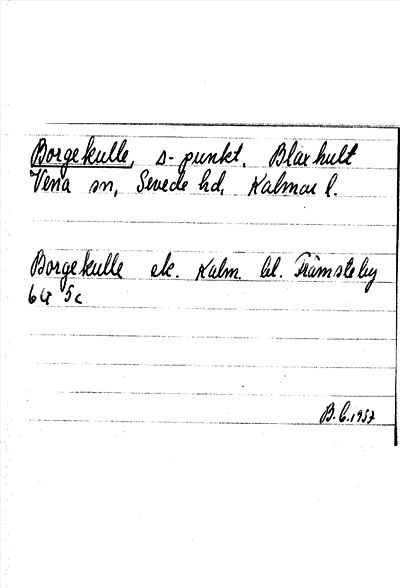 Borgekulle, s-punkt, Blaxhult
Vena sn, Sevede hd, Kalmar l.
Borgekulle ek. Kalm. bl. Tråmsteby
6G 5c
B. G. 1957